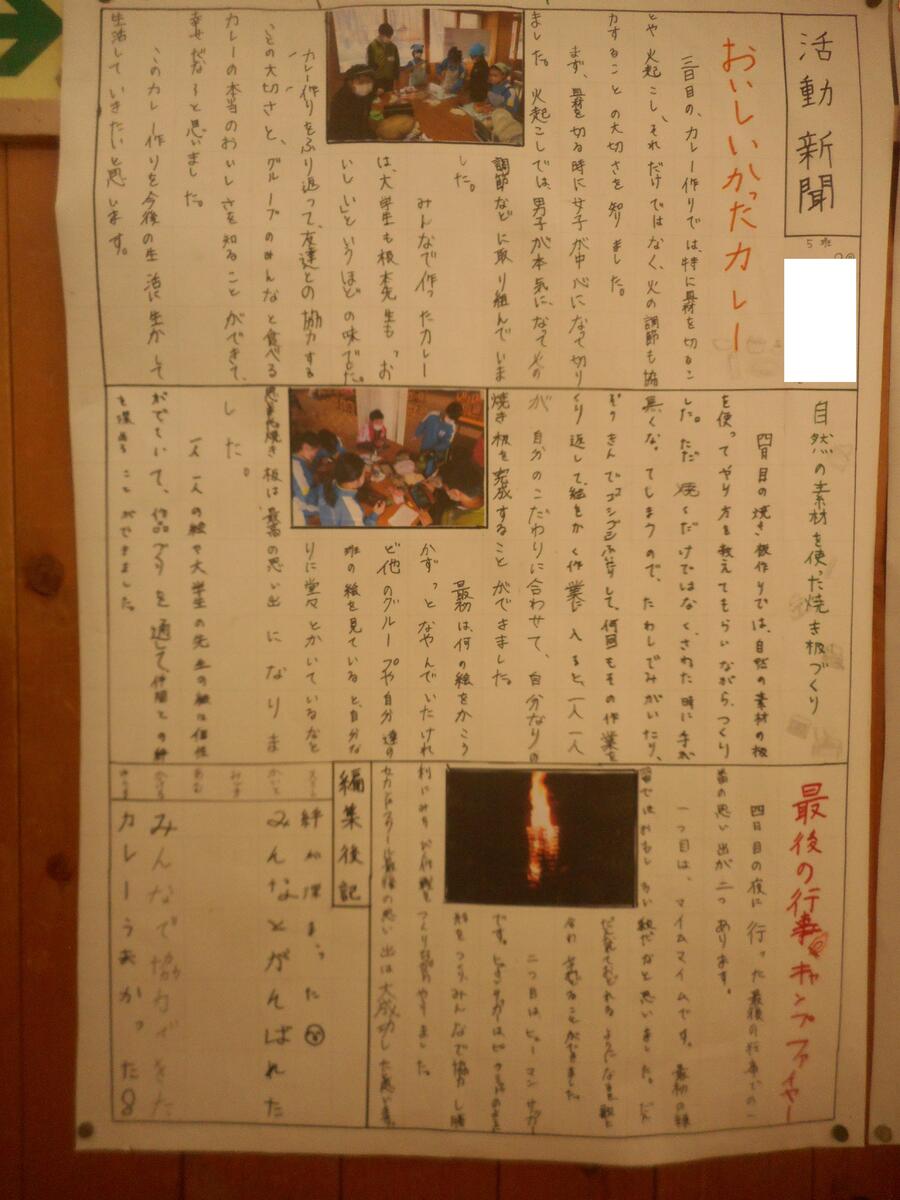 活動新聞
5班
おいしいかったカレー
三日目の、カレー作りでは、特に具材を切るこ
とや火起こし、それだけではなく、火の調節も協
力することの大切さを知りました。
まず、具材を切る時に女子が中心になって切り
ました。火起こしでは、男子が本気になって火の
調節などに取り組んでいま
した。
みんなで作ったカレー
は、大学生も根本先生も「お
いしい」というほどの味でした。
カレー作りをふり返って、友達との協力する
ことの大切さと、グループのみんなと食べる
カレーの本当のおいしさを知ることができて、
幸せだなぁと思いました。
このカレー作りを今後の生活に生かして
生活していきたいと思います。
自然の素材を使った焼き板づくり
四日目の焼き板作りでは、自然の素材の板
を使ってやり方を教えてもらいながら、つくり
した。ただ焼くだけではなく、さわた時に手が
黒くなってしまうので、たわしでみがいたり、
ぞうきんでゴシゴシふいたりして、何回もその作業を
くり返して、絵をかく作業に入ると、一人一人
が自分のこだわりに合わせて、自分なりの
焼き板を完成することができました。
最初は、何の絵をかこう
かずっとなやんでいたけれ
ど他のグループや自分達の
班の絵を見ていると、自分な
りに堂々とかいているなと
焼き板は最高の思い出になりま
した。
一人一人の絵や大学生の先生の絵は個性
がでていて、作品づくりを通して、仲間との絆
を深めることができました。
最後の行事キャンプファイヤー
四日目の夜に行った最後の行事での一
番の思い出が二つあります。
一つ目は、マイムマイムです。最初の練
だなと思いました。だん
だん見ておどれるようになり
合わせることができました
二つ目はヒューマンサッカー
です。
をつくり、みんなで協力し勝
利
最後の思い出は大成功した
編集後記
絆が深まった
みんなとがんばれた
みんなで協力できた
カレーうまかった